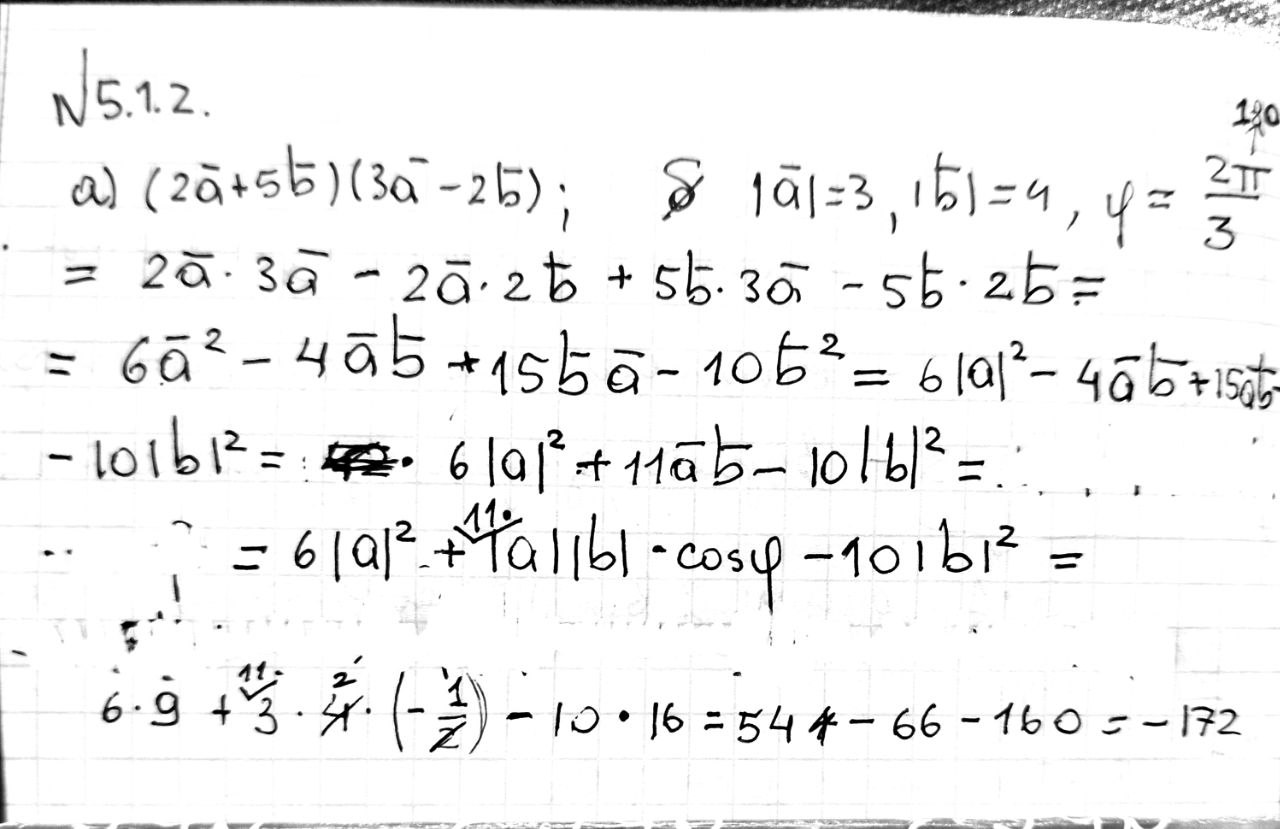 №5.1.2.
120
a) (2ā+5b̄)(3ā-2b̄); |ā|=3, |b̄|=4, φ = 2π/3
= 2ā·3ā - 2ā·2b̄ + 5b̄·3ā - 5b̄·2b̄ =
= 6ā² - 4āb̄ + 15b̄ā - 10b̄² = 6|a|² - 4āb̄ + 15āb̄
- 10|b|² = 6|a|² + 11āb̄ - 10|b|² =
= 6|a|² + 11·|a||b|·cosφ - 10|b|² =
6·9 + 11·3·4·(-1/2) - 10·16 = 54 - 66 - 160 = -172